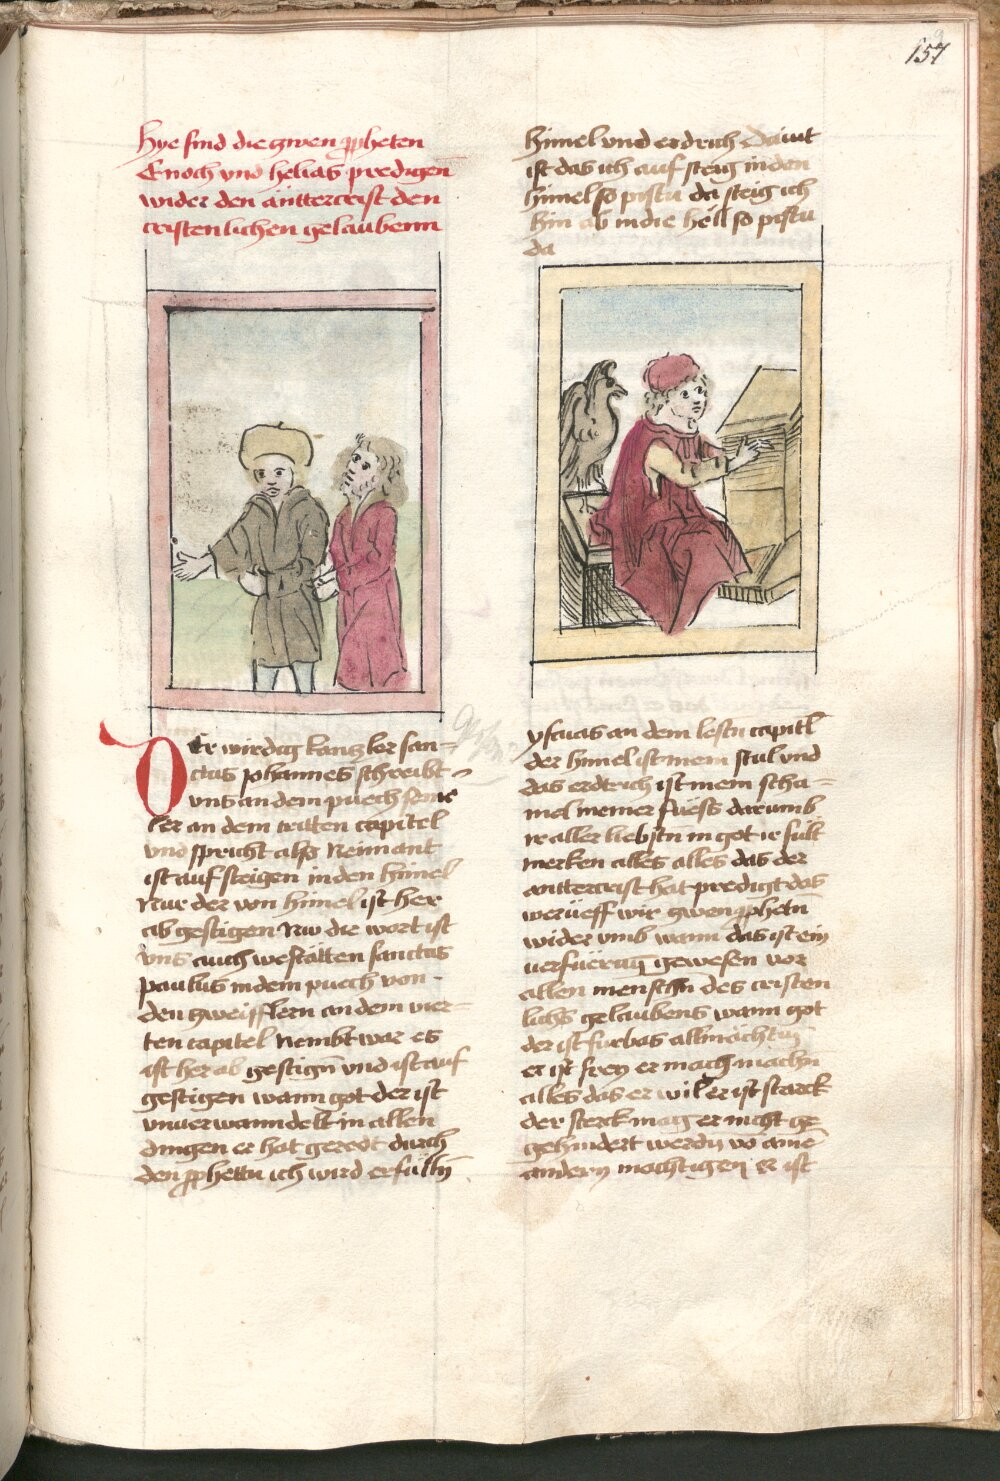 157
Hye sind die zwen ꝓpheten
Enoch vnd helias predigen
wider den äntterrist den
cristenlichen gelaubenn
Er wirdig kanczler san=
ctus Johannes schreibt
vns an dem puech seine
ler an dem tritten capitel
vnd spricht also Niemant
ist auf steigen in den himel
Nur der von himel ist her
ab gestigen Nw die wort ist
vns auch westätten sanctus
paulus in dem puech von
den zweifflern an dem vier=
ten capitel Nembt war es
ist her ab gestign vnd ist auf
gestigen wann got der ist
vnuerwanndelt in allen
dingen er hat geredt durch
den ꝓphetn ich wird erfülln
himel vnd erdrich Dauit
ist das ich auf steig in den
himel so pistu da steig ich
hin ab in die hell so pistu
da
ysaias an dem lestn capitl
der himel ist mein stul vnd
das erdtrich ist mein scha=
mel meiner füess darumb
ir aller liebstn in got ir sült
merken alles alles das der
anttercrist hat predigt das
werüeff wir zwen ꝓphetn
wider vmb wann das ist ein
verfüerung gewesen vor
allen menschn des cristen
lichs gelaubens wann got
der ist furbas allmächtig
er ist frey er mach machn
alles das er wil er ist starck
der sterck mag er nicht ge
gehindert werdn vō aine
andern mächtigen er ist